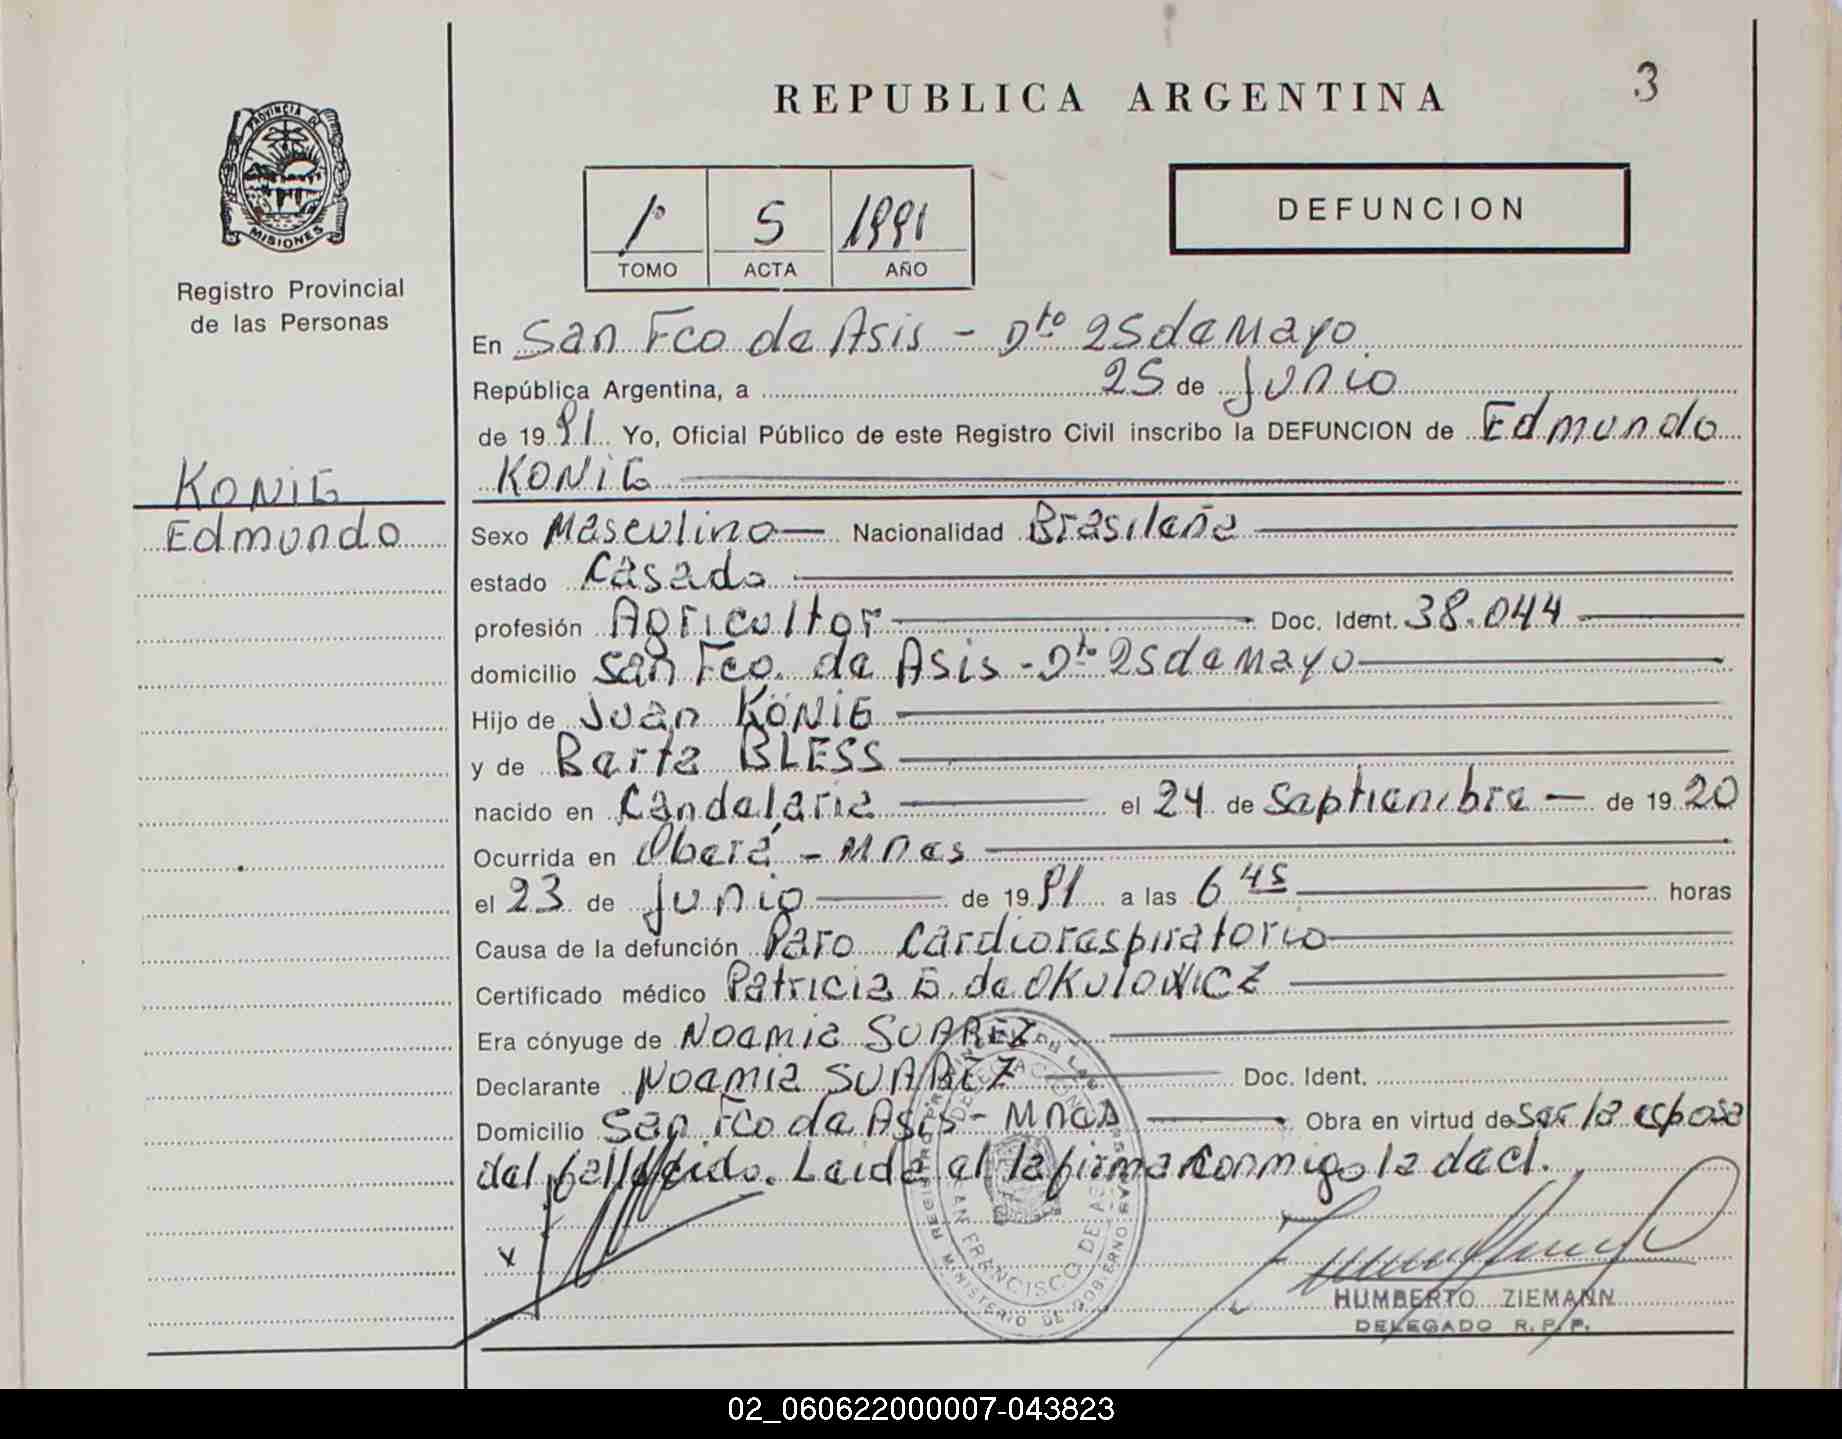 3
REPUBLICA ARGENTINA
PROVINCIA DE
MISIONES
Registro Provincial
de las Personas
1º 5 1991
TOMO ACTA AÑO
DEFUNCION
En San Fco de Asis - Dto 25 de Mayo
República Argentina, a 25 de Junio
de 1991 Yo, Oficial Público de este Registro Civil inscribo la DEFUNCION de Edmundo
KONIG
KONIG
Edmundo
Sexo Masculino Nacionalidad Brasileña
estado Casado
profesión Agricultor Doc. Ident. 38.044
domicilio San Fco. de Asis - Dto 25 de Mayo
Hijo de Juan KÖNIG
y de Berta BLESS
nacido en Candelaria el 24 de Septiembre de 1920
Ocurrida en Oberá - Mnes
el 23 de Junio de 1991 a las 6 45 horas
Causa de la defunción Paro Cardiorespiratorio
Certificado médico Patricia G. de OKULOWICZ
Era cónyuge de Noemia SUAREZ
Declarante Noemia SUAREZ Doc. Ident.
Domicilio San Fco de Asis - Mnes Obra en virtud de ser la esposa
del fallecido. Leida el la firma conmigo la decl.
x
MINISTERIO DE GOBIERNO
SAN FRANCISCO DE ASIS
HUMBERTO ZIEMANN
DELEGADO R.P.P.
02_060622000007-043823